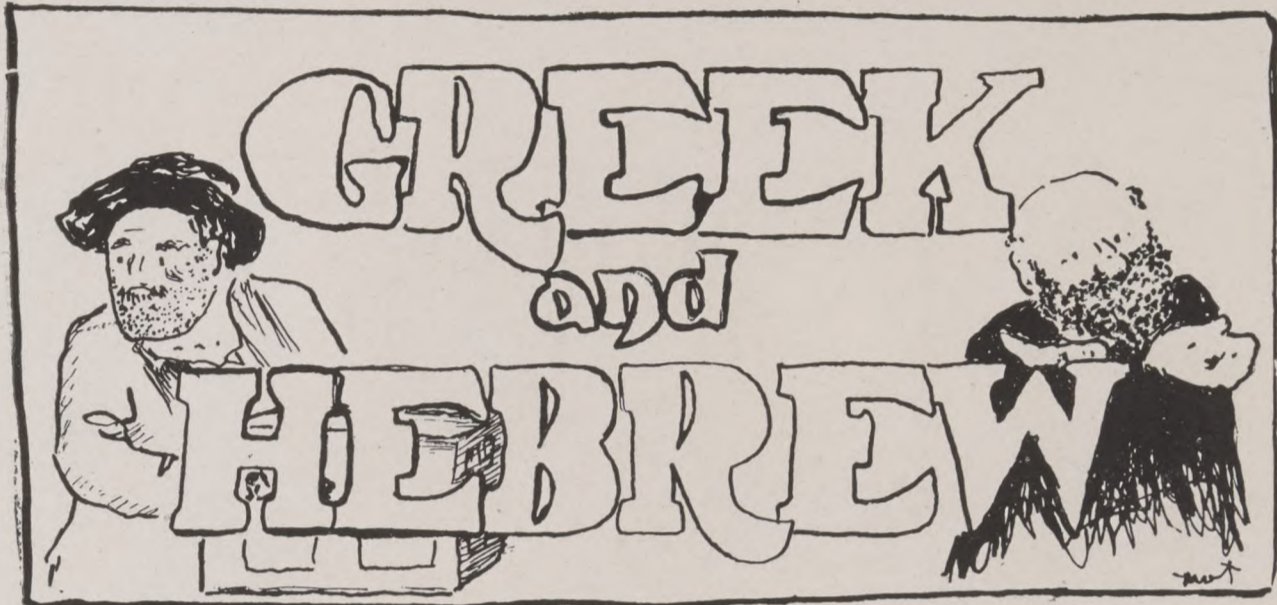 GREEK
and
HEBREW